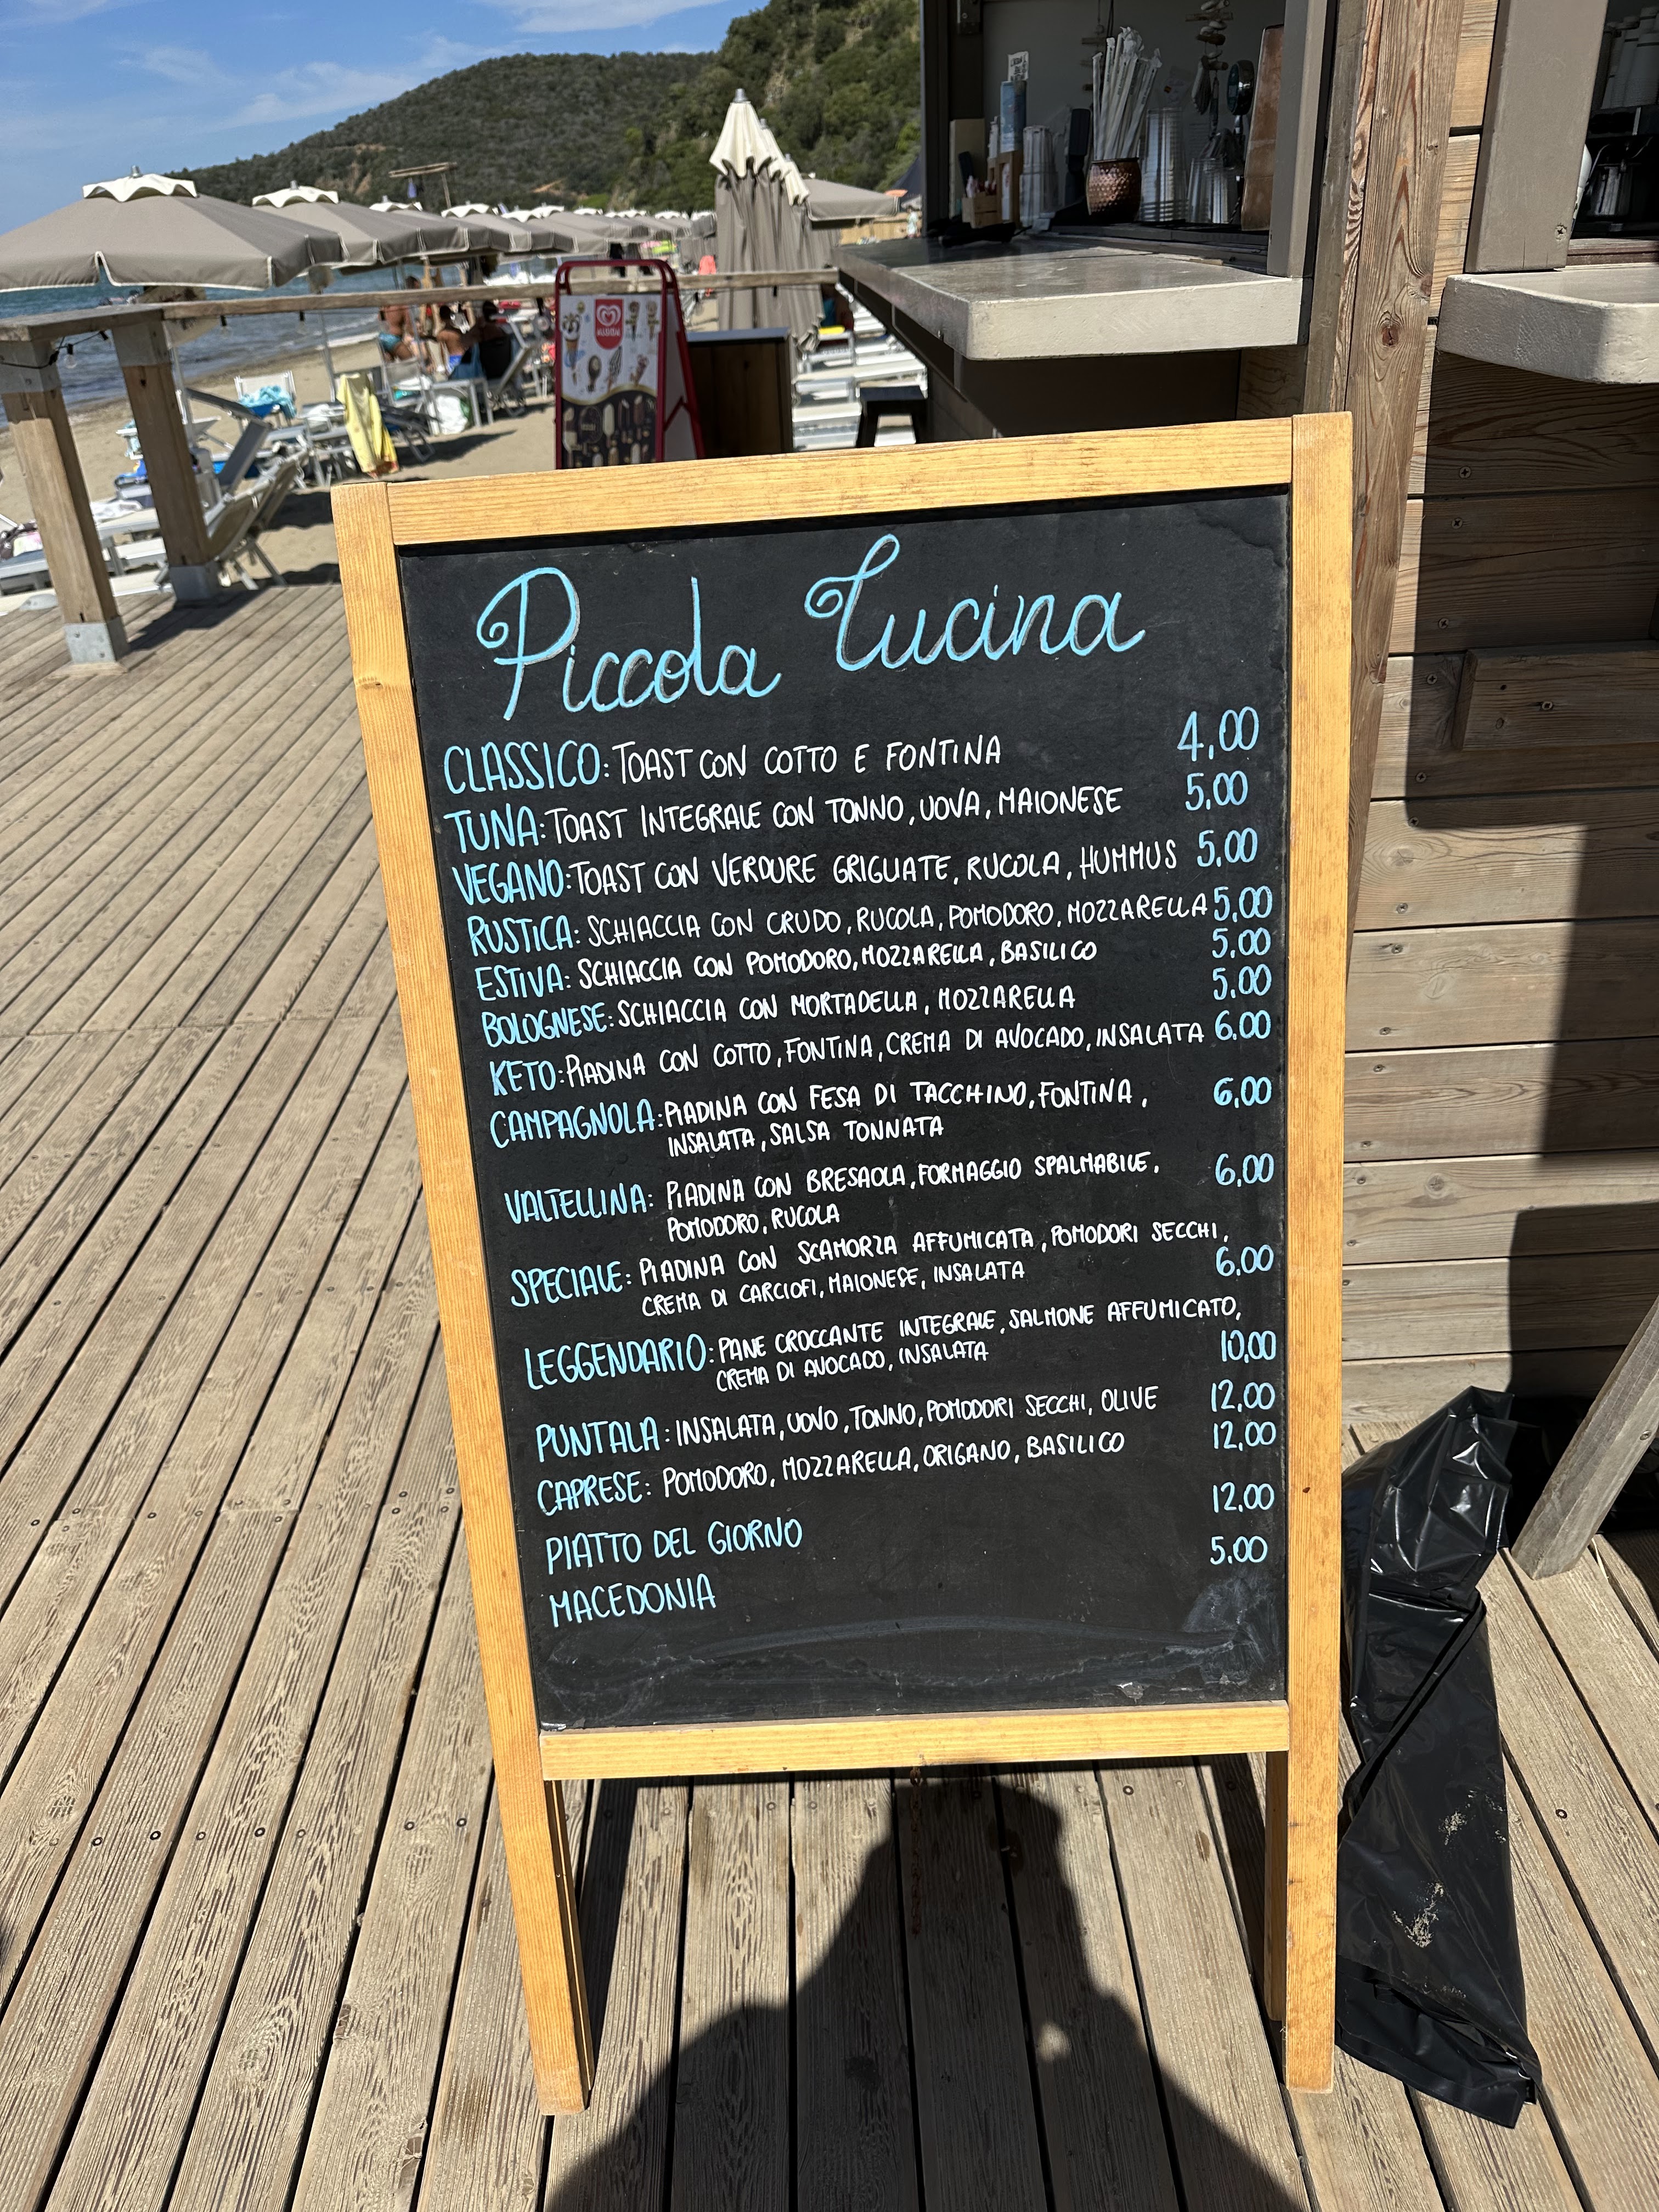 Piccola Cucina
CLASSICO: TOAST CON COTTO E FONTINA 4,00
TUNA: TOAST INTEGRALE CON TONNO, UOVA, MAIONESE 5,00
VEGANO: TOAST CON VERDURE GRIGLIATE, RUCOLA, HUMMUS 5,00
RUSTICA: SCHIACCIA CON CRUDO, RUCOLA, POMODORO, MOZZARELLA 5,00
ESTIVA: SCHIACCIA CON POMODORO, MOZZARELLA, BASILICO 5,00
BOLOGNESE: SCHIACCIA CON MORTADELLA, MOZZARELLA 5,00
KETO: PIADINA CON COTTO, FONTINA, CREMA DI AVOCADO, INSALATA 6,00
CAMPAGNOLA: PIADINA CON FESA DI TACCHINO, FONTINA, 6,00
INSALATA, SALSA TONNATA
VALTELLINA: PIADINA CON BRESAOLA, FORMAGGIO SPALMABILE, 6,00
POMODORO, RUCOLA
SPECIALE: PIADINA CON SCAMORZA AFFUMICATA, POMODORI SECCHI,
CREMA DI CARCIOFI, MAIONESE, INSALATA 6,00
LEGGENDARIO: PANE CROCCANTE INTEGRALE, SALMONE AFFUMICATO,
CREMA DI AVOCADO, INSALATA 10,00
PUNTALA: INSALATA, UOVO, TONNO, POMODORI SECCHI, OLIVE 12,00
CAPRESE: POMODORO, MOZZARELLA, ORIGANO, BASILICO 12,00
PIATTO DEL GIORNO 12,00
MACEDONIA 5,00